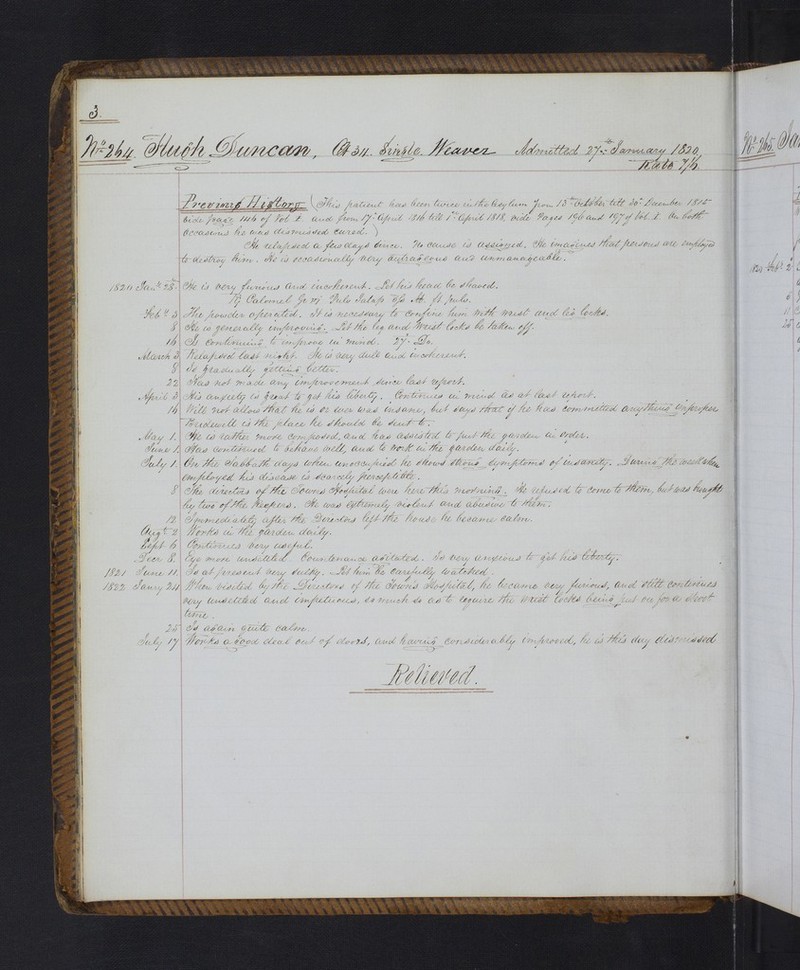 3.
No. 264. Hugh Duncan, Æt 34. Single. Weaver Admitted 27th January 1820.
Rate 7/6
Previous History (This patient has been twice in the Asylum from 13th October till 30th December 1815
vide page 146 of Vol 1. and from 17th April 1816 till 1st April 1818, vide Pages 196 and 197 of Vol. 1. On both
occasions he was dismissed cured.)
He relapsed a few days since. No cause is assigned. He imagines that persons are employed
to destroy him. He is occasionally very outrageous and unmanageable.
1820 Jany 28. He is very furious and incoherent. Let his head be shaved.
℞ Calomel Gr vj Pulv Jalap ft. pulv.
Feby 3 The powder operated. It is necessary to confine him with wrist and leg locks.
8 He is generally improving. Let the leg and wrist locks be taken off.
16 Is continuing to improve in mind. 27. Do.
March 3 Relapsed last night. He is very dull and incoherent.
8 Is gradually getting better.
22 Has not made any improvement since last report.
April 3 His anxiety is great to get his liberty. Continues in mind as at last report.
16 Will not allow that he is or ever was insane, but says that if he has committed anything improper
Bridewell is the place he should be sent to.
May 1. He is rather more composed, and has assisted to put the garden in order.
June 1. Has continued to behave well, and to work in the garden daily.
July 1. On the Sabbath days when unoccupied he shews strong symptoms of insanity. During the week when
employed his disease is scarcely perceptible.
8 The directors of the Towns Hospital were here this morning. He refused to come to them, but was brought
by two of the Keepers. He was extremely violent and abusive to them.
12 Immediately after the Directors left the house he became calm.
Augt 2 Works in the garden daily.
Sept 6 Continues very useful.
Decr 8. Eye more unsettled. Countenance agitated. Is very anxious to get his liberty.
1821 June 10. Is at present very sulky. Let him be carefully watched.
1822 Jany 24 When visited by the Directors of the Towns Hospital, he became very furious, and still continues
very unsettled and impetuous, so much so as to require the wrist locks being put on for a short
time.
25 Is again quite calm.
July 17 Works a good deal out of doors, and having considerably improved, he is this day dismissed
Relieved.
No. 265.
1820 Feby 2